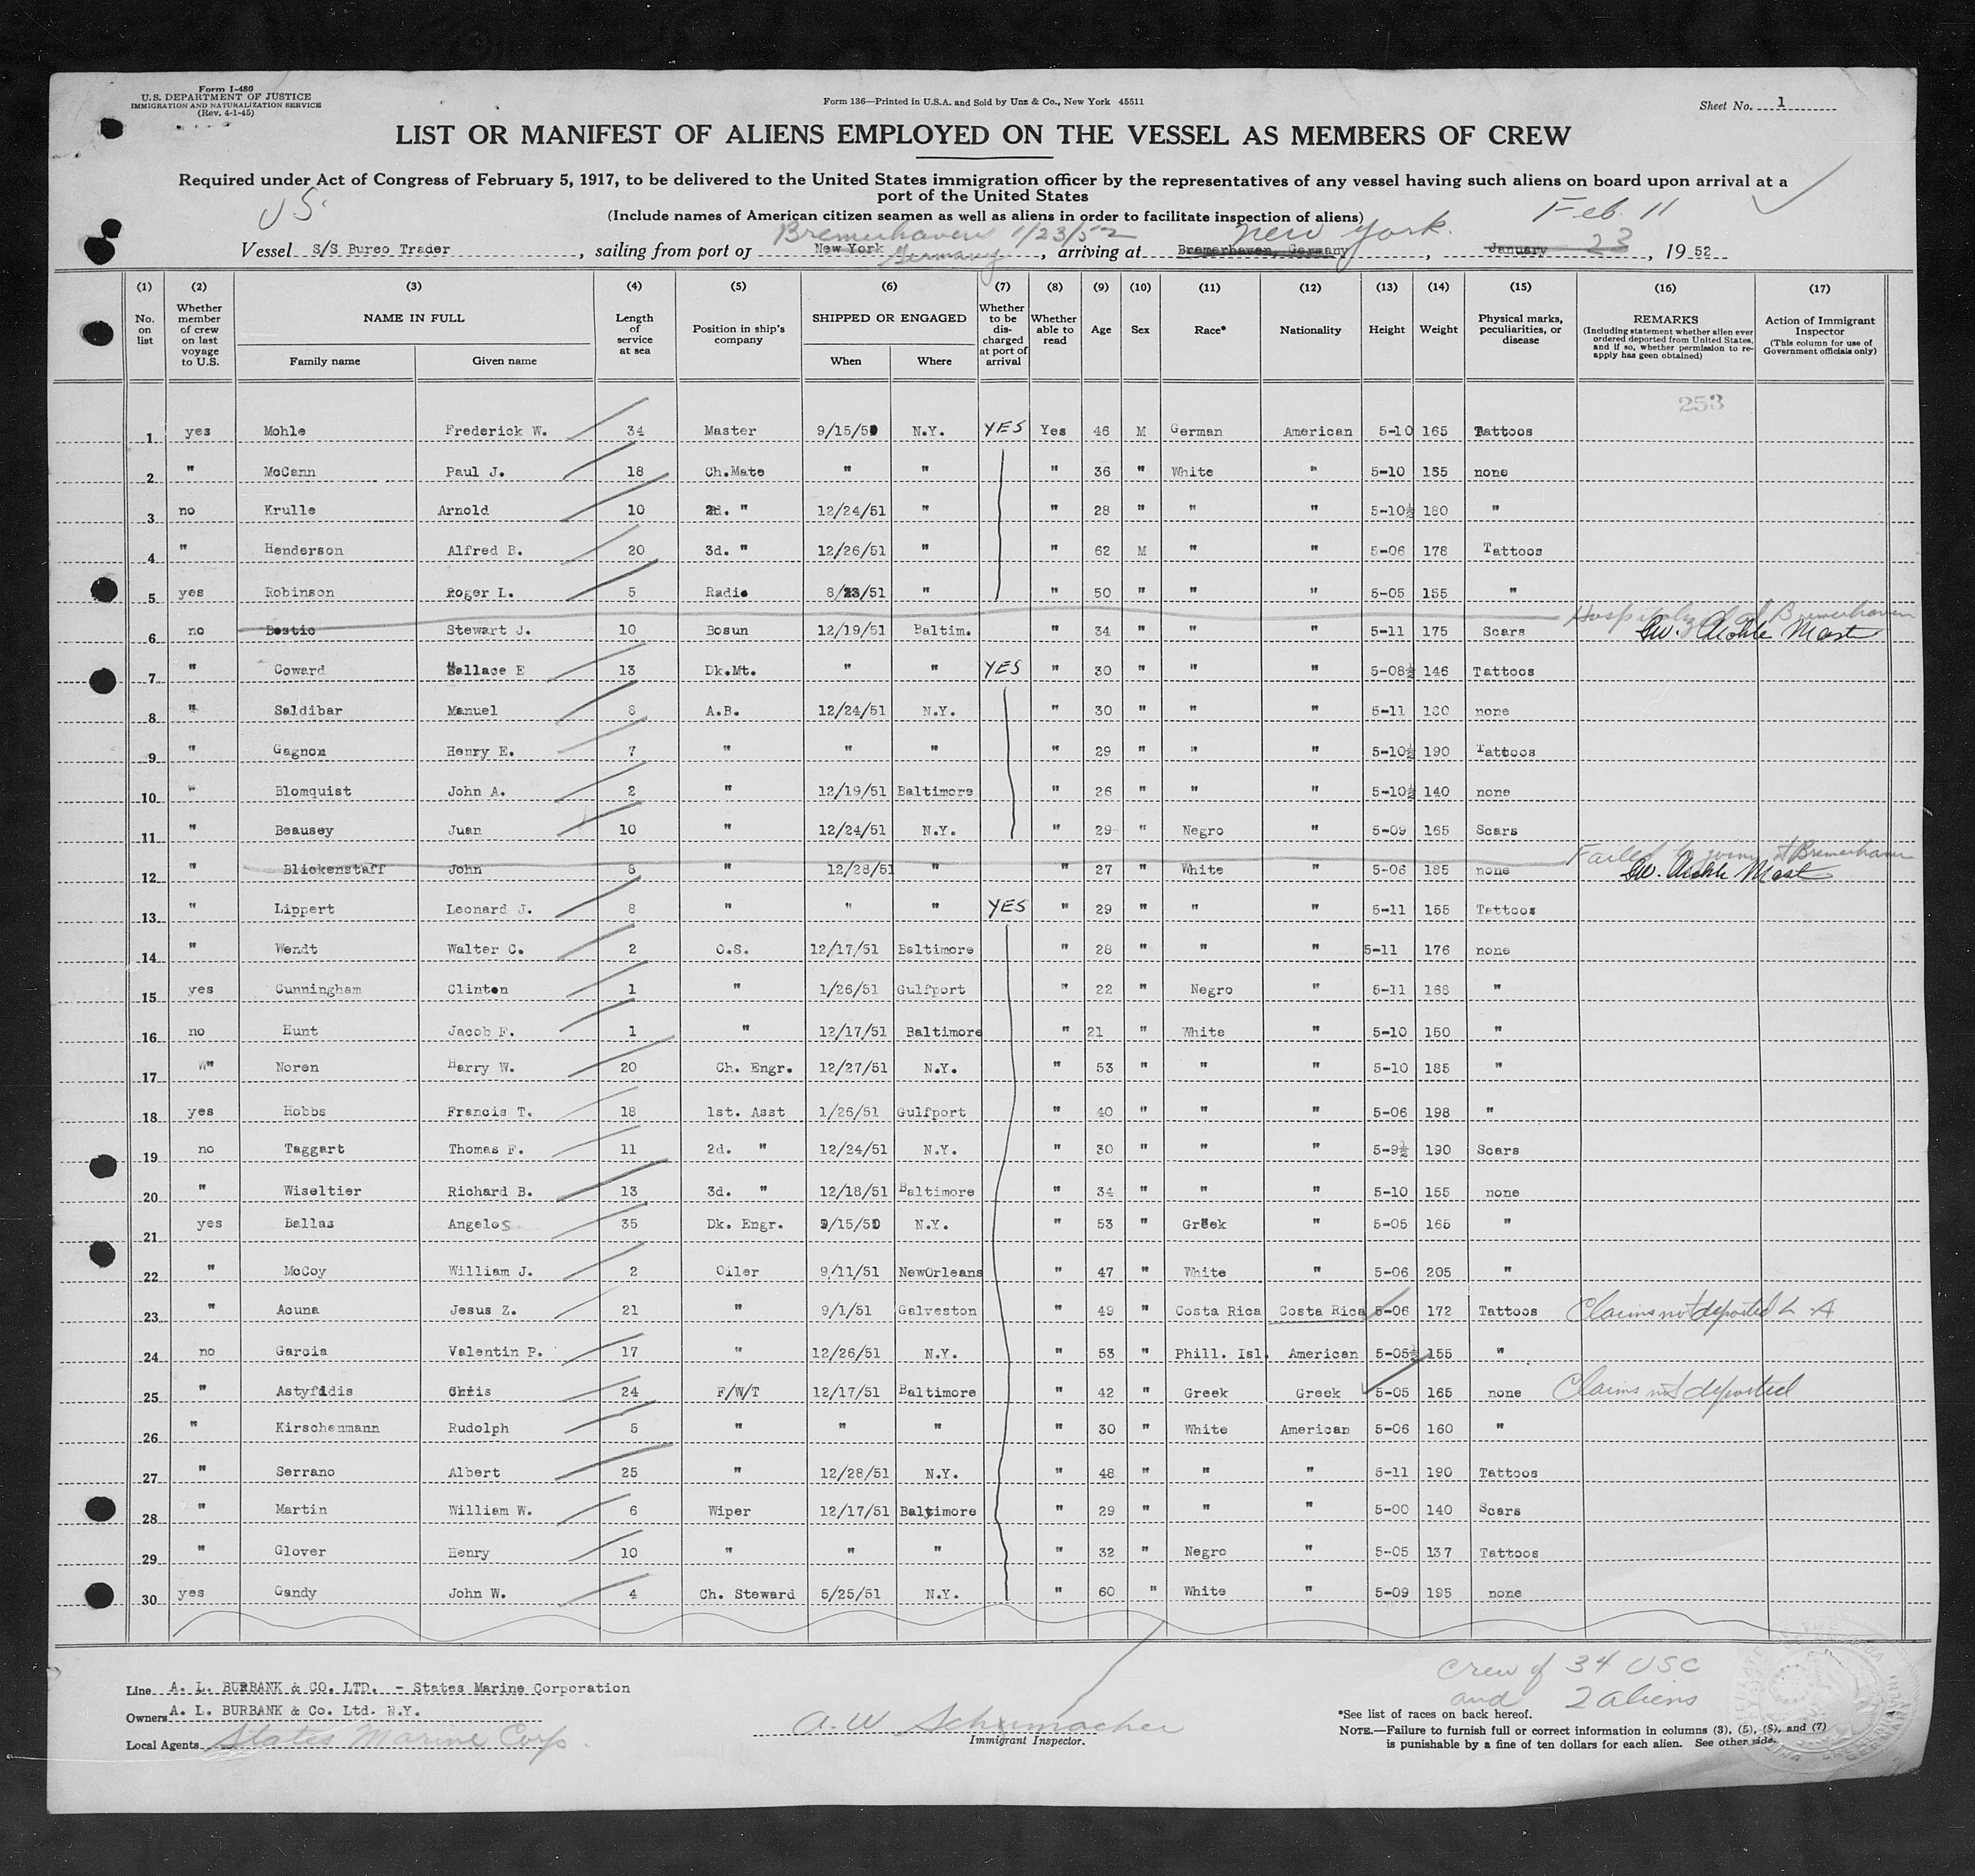 Form I-480
U.S. DEPARTMENT OF JUSTICE
IMMIGRATION AND NATURALIZATION SERVICE
(Rev. 4-1-45)
Form 136—Printed in U.S.A. and Sold by Unz & Co., New York 45511
Sheet No. 1
LIST OR MANIFEST OF ALIENS EMPLOYED ON THE VESSEL AS MEMBERS OF CREW
Required under Act of Congress of February 5, 1917, to be delivered to the United States immigration officer by the representatives of any vessel having such aliens on board upon arrival at a
port of the United States
(Include names of American citizen seamen as well as aliens in order to facilitate inspection of aliens)
US.
Bremerhaven 1/23/52 New York. Feb. 11
Vessel S/S Bureo Trader, sailing from port of New York Germany, arriving at Bremerhaven, Germany, January 23, 1952
(1) (2) (3) (4) (5) (6) (7) (8) (9) (10) (11) (12) (13) (14) (15) (16) (17)
No. on list
Whether member of crew on last voyage to U.S.
NAME IN FULL
Family name
Given name
Length of service at sea
Position in ship's company
SHIPPED OR ENGAGED
When
Where
Whether to be discharged at port of arrival
Whether able to read
Age
Sex
Race*
Nationality
Height
Weight
Physical marks, peculiarities, or disease
REMARKS
(Including statement whether alien ever ordered deported from United States, and if so, whether permission to re-apply has geen obtained)
Action of Immigrant Inspector
(This column for use of Government officials only)
253
1 yes Mohle Frederick W. 34 Master 9/15/50 N.Y. YES Yes 46 M German American 5-10 165 Tattoos
2 " McCann Paul J. 18 Ch.Mate " " " 36 " White " 5-10 155 none
3 no Krulle Arnold 10 2d. " 12/24/51 " " 28 " " " 5-10½ 180 "
4 " Henderson Alfred B. 20 3d. " 12/26/51 " " 62 M " " 5-06 178 Tattoos
5 yes Robinson Roger L. 5 Radio 8/23/51 " " 50 " " " 5-05 155 "
6 no Bostic Stewart J. 10 Bosun 12/19/51 Baltim. " 34 " " " 5-11 175 Scars Hospitalized at Bremerhaven
Mast
7 " Coward Wallace E 13 Dk.Mt. " " YES " 30 " " " 5-08½ 146 Tattoos
8 " Saldibar Manuel 8 A.B. 12/24/51 N.Y. " 30 " " " 5-11 180 none
9 " Gagnon Henry E. 7 " " " " 29 " " " 5-10½ 190 Tattoos
10 " Blomquist John A. 2 " 12/19/51 Baltimore " 26 " " " 5-10½ 140 none
11 " Beausey Juan 10 " 12/24/51 N.Y. " 29 " Negro " 5-09 165 Scars
12 " Blickenstaff John 8 " 12/28/51 " " 27 " White " 5-06 185 none Failed to join at Bremerhaven
Mast
13 " Lippert Leonard J. 8 " " " YES " 29 " " " 5-11 155 Tattoos
14 " Wendt Walter C. 2 O.S. 12/17/51 Baltimore " 28 " " " 5-11 176 none
15 yes Cunningham Clinton 1 " 1/26/51 Gulfport " 22 " Negro " 5-11 168 "
16 no Hunt Jacob F. 1 " 12/17/51 Baltimore " 21 " White " 5-10 150 "
17 " Noren Harry W. 20 Ch. Engr. 12/27/51 N.Y. " 53 " " " 5-10 185 "
18 yes Hobbs Francis T. 18 1st. Asst 1/26/51 Gulfport " 40 " " " 5-06 198 "
19 no Taggart Thomas F. 11 2d. " 12/24/51 N.Y. " 30 " " " 5-9½ 190 Scars
20 " Wiseltier Richard B. 13 3d. " 12/18/51 Baltimore " 34 " " " 5-10 155 none
21 yes Ballas Angelos 35 Dk. Engr. 9/15/50 N.Y. " 53 " Greek " 5-05 165 "
22 " McCoy William J. 2 Oiler 9/11/51 NewOrleans " 47 " White " 5-06 205 "
23 " Acuna Jesus Z. 21 " 9/1/51 Galveston " 49 " Costa Rica Costa Rica 5-06 172 Tattoos Claims not deported
24 no Garcia Valentin P. 17 " 12/26/51 N.Y. " 53 " Phill. Isl. American 5-05½ 155 "
25 " Astyfidis Chris 24 F/W/T 12/17/51 Baltimore " 42 " Greek Greek 5-05 165 none Claims not deported
26 " Kirschenmann Rudolph 5 " " " " 30 " White American 5-06 160 "
27 " Serrano Albert 25 " 12/28/51 N.Y. " 48 " " " 5-11 190 Tattoos
28 " Martin William W. 6 Wiper 12/17/51 Baltimore " 29 " " " 5-00 140 Scars
29 " Glover Henry 10 " " " " 32 " Negro " 5-05 137 Tattoos
30 yes Gandy John W. 4 Ch. Steward 5/25/51 N.Y. " 60 " White " 5-09 195 none
Line A. L. BURBANK & CO. LTD. - States Marine Corporation
Owners A. L. BURBANK & Co. Ltd. N.Y.
Local Agents States Marine Corp.
A.W Schumacher
Immigrant Inspector.
Crew of 34 USC
and 2 aliens
*See list of races on back hereof.
NOTE.—Failure to furnish full or correct information in columns (3), (5), (6), and (7)
is punishable by a fine of ten dollars for each alien. See other side.